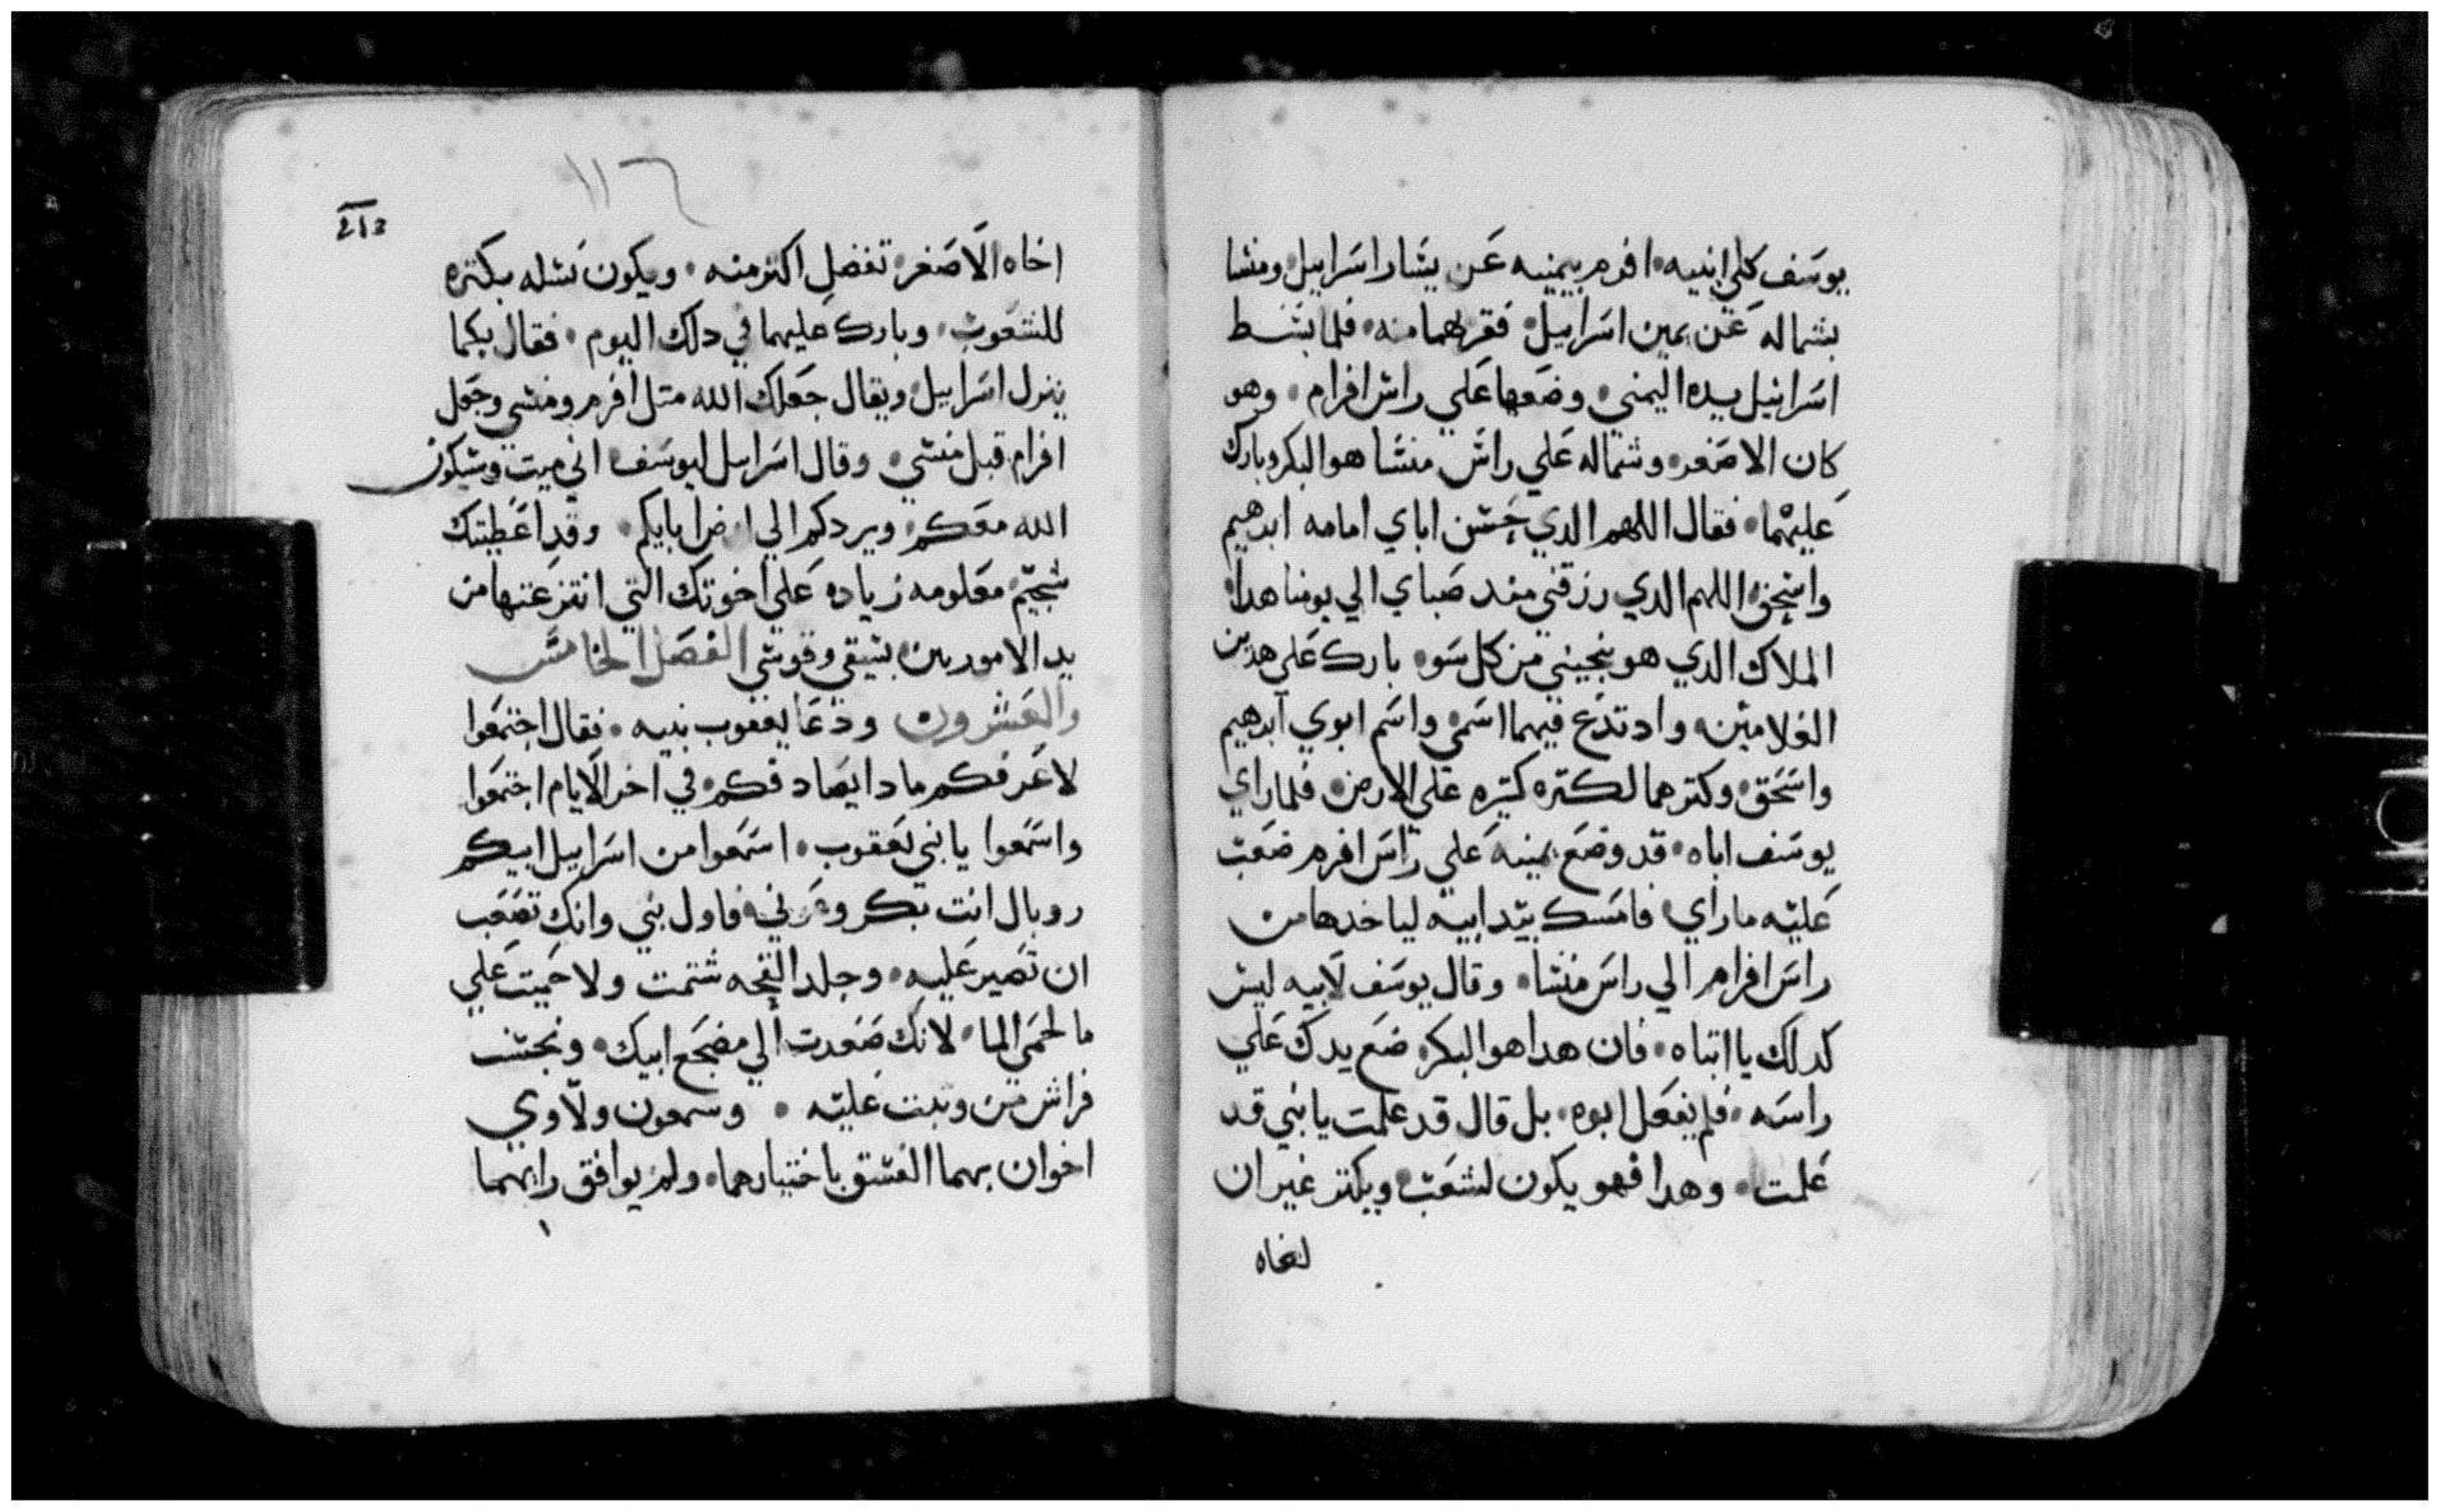 يوسف كلي ابنيه افرم بيمينه عن يسار اسراييل ومنشا
بشماله عن يمين اسراييل فقربهما منه فلما بسط
اسراييل يده اليمني وضعها علي راس افرام وهو
كان الاصغر وشماله علي راس منشا هو البكر وبارك
عليهما فقال اللهم الدي حسن اباي امامه ابرهيم
واسحق اللهم الدي رزقني مند صباي الي يومنا هدا
الملاك الدي هو ينجيني من كل سو بارك علي هدين
الغلامين وادتدع فيهما اسمي واسم ابوي ابرهيم
واسحق وكترهما لكتره كتيره علي الارض فلما راي
يوسف اباه قد وضع يمينه علي راس افرم صعب
عليه ما راي فامسك بيد ابيه لياخدها من
راس افرام الي راس منشا وقال يوسف لابيه ليس
كدلك يا ابتاه فان هدا هو البكر ضع يدك علي
راسه فلم يفعل ابوه بل قال قد علمت يابني قد
علمت وهدا فهو يكون لشعب ويكتر غير ان
اخاه
١١٦
اخاه الاصغر تفضل اكتر منه ويكون نسله بكتره
للشعوب وبارك عليهما في دلك اليوم فقال بكما
يتبرك اسراييل ويقال جعلك الله متل افرم ومنشي وجعل
افرام قبل منشي وقال اسراييل ليوسف اني ميت وسيكون
الله معكم ويردكم الي ارض ابايكم وقد اعطيتك
شجيم معلومه زياده علي اخوتك التي انتزعتها من
يد الاموريين بسيفي وقوسي الفصل الخامس
والعشرون ودعا يعقوب بنيه فقال اجتمعوا
لاعرفكم مادا يصادفكم في اخر الايام اجتمعوا
واسمعوا يا بني يعقوب اسمعوا من اسراييل ابيكم
روبال انت بكر وعزني فاول بني وانك تصعب
ان تصير عليه وجلد القحه شتمت ولا حميت علي
ما لحمي الما لانك صعدت الي مضجع ابيك ونجست
فراش من وتبت عليه وسمعون ولاوي
اخوان بهما الفسق باختيارهما ولم يوافق رايهما